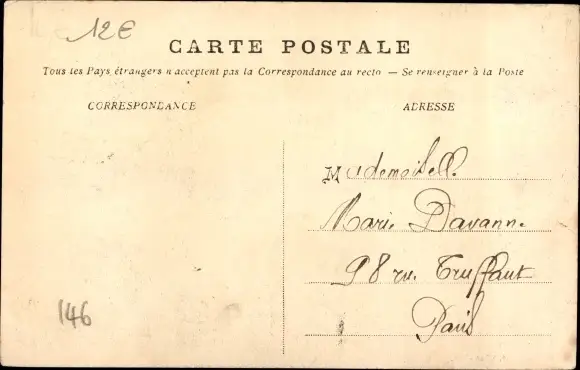 12€
CARTE POSTALE
Tous les Pays étrangers n'acceptent pas la Correspondance au recto — Se renseigner à la Poste
CORRESPONDANCE
ADRESSE
Mademoiselle
Marie Davanne
98 rue Truffaut
Paris
146